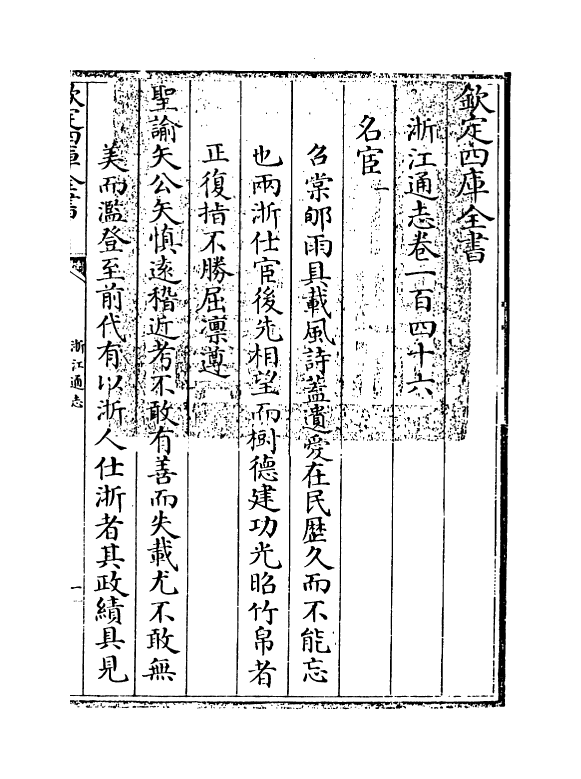 欽定四庫全書
浙江通志卷一百四十六
名宦一
召棠郇雨具載風詩蓋遺愛在民歷久而不能忘
也兩浙仕宦後先相望而樹德建功光昭竹帛者
正復指不勝屈凜遵
聖諭矢公矢慎遠稽近考不敢有善而失載尤不敢無
美而濫登至前代有以浙人仕浙者其政績具見
欽定四庫全書
浙江通志
一